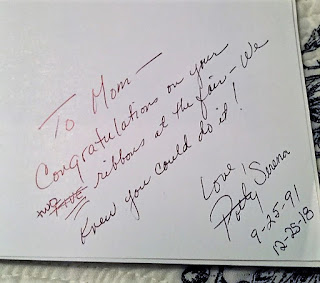 To Mom —
Congratulations on your
two FIVE ribbons at the fair - We
Knew you could do it!
Love,
Serena
9-25-91
12-25-18